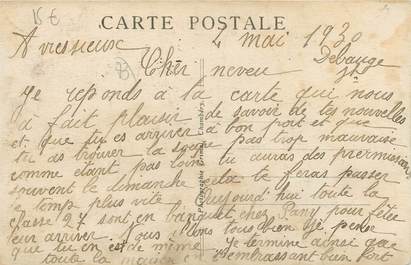 15€
CARTE POSTALE
Avressieux 2 mai 1930
Cher neveu
je reponds à la carte qui nous
à fait plaisir de savoir de tes nouvelles
et que tu es arriver à bon port et que
tu as trouver la soupe pas trop mauvaise
comme etant pas loin tu auras des permission
souvent le dimanche cela te feras passer
le temp plus vite aujourd'hui toute la
classe 27 sont en banquet chez pour fêter
leur arriver Nous allons tous bien je pense
que tu en es de même je termine ainsi que
toute la en t'embrassant bien fort